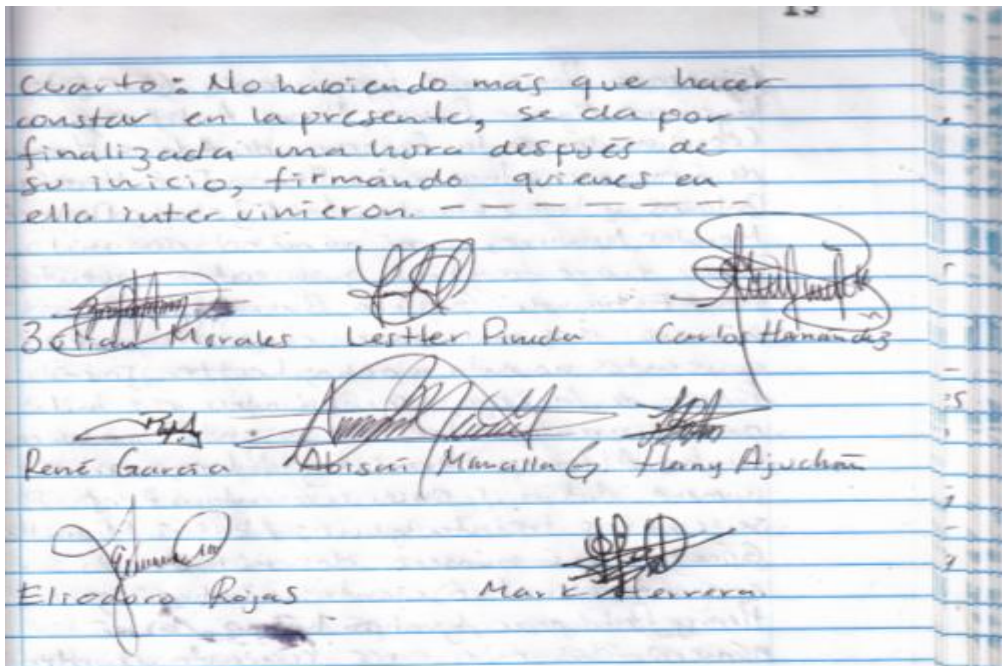 Cuarto: No habiendo más que hacer
constar en la presente, se da por
finalizada una hora después de
su inicio, firmando quienes en
ella intervinieron. - - - - - - - -
Morales Lestter Pineda Carlos Hernández
René García Abisaí Mancilla G. Hany Ajuchán
Eliodoro Rojas Mark Herrera